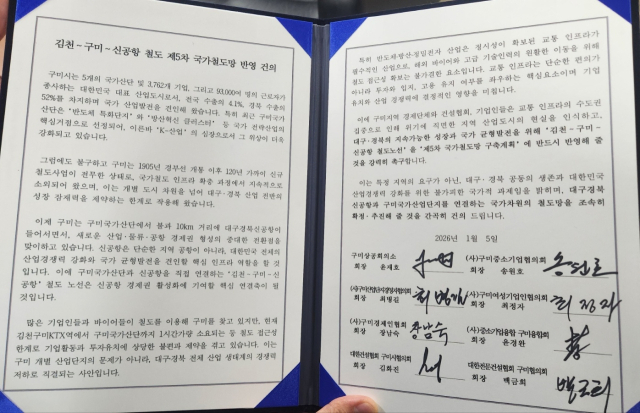 김천~구미~신공항 철도 제5차 국가철도망 반영 건의
구미시는 5개의 국가산단 및 3,762개 기업, 그리고 93,000여 명의 근로자가
종사하는 대한민국 대표 산업도시로서, 전국 수출의 4.1%, 경북 수출의
52%를 차지하며 국가 산업발전을 견인해 왔습니다. 특히 최근 구미국가
산단은 '반도체 특화단지'와 '방산혁신 클러스터' 등 국가 전략산업의
핵심거점으로 선정되어, 이른바 'K-산업'의 심장으로서 그 위상이 더욱
강화되고 있습니다.
그럼에도 불구하고 구미는 1905년 경부선 개통 이후 120년 가까이 신규
철도사업이 전무한 상태로, 국가철도 인프라 확충 과정에서 지속적으로
소외되어 왔으며, 이는 개별 도시 차원을 넘어 대구·경북 산업 전반의
성장 잠재력을 제약하는 한계로 작용해 왔습니다.
이제 구미는 구미국가산단에서 불과 10km 거리에 대구경북신공항이
들어서면서, 새로운 산업·물류·공항 경제권 형성의 중대한 전환점을
맞이하고 있습니다. 신공항은 단순한 지역 공항이 아니라, 대한민국 전체의
산업경쟁력 강화와 국가 균형발전을 견인할 핵심 인프라 역할을 할 것
입니다. 이에 구미국가산단과 신공항을 직접 연결하는 '김천~구미~신
공항' 철도 노선은 신공항 경제권 활성화에 기여할 핵심 연결축이 될
것입니다.
많은 기업인들과 바이어들이 철도를 이용해 구미를 찾고 있지만, 현재
김천구미KTX역에서 구미국가산단까지 1시간가량 소요되는 등 철도 접근성
한계로 기업활동과 투자유치에 상당한 불편과 제약을 겪고 있습니다. 이는
구미 개별 산업단지의 문제가 아니라, 대구경북 전체 산업 생태계의 경쟁력
저하로 직결되는 사안입니다.
특히 반도체·방산·정밀전자 산업은 정시성이 확보된 교통 인프라가
필수적인 산업으로, 해외 바이어와 고급 기술인력의 원활한 이동을 위해
철도 접근성 확보는 불가결한 요소입니다. 교통 인프라는 단순한 편의가
아니라 투자와 입지, 고용 유지 여부를 좌우하는 핵심요소이며 기업
유치와 산업 경쟁력에 결정적인 영향을 미칩니다.
이에 구미지역 경제단체와 건설협회, 기업인들은 교통 인프라의 수도권
집중으로 인해 위기에 직면한 지역 산업도시의 현실을 인식하고,
대구·경북의 지속가능한 성장과 국가 균형발전을 위해 '김천~구미~
신공항 철도노선'을 '제5차 국가철도망 구축계획'에 반드시 반영해 줄
것을 강력히 촉구합니다.
이는 특정 지역의 요구가 아닌, 대구·경북 공동의 생존과 대한민국
산업경쟁력 강화를 위한 불가피한 국가적 과제임을 밝히며, 대구경북
신공항과 구미국가산업단지를 연결하는 국가차원의 철도망을 조속히
확정·추진해 줄 것을 간곡히 건의 드립니다.
2026년 1월 5일
구미상공회의소
회장 윤재호
(사)구미중소기업협의회
회장 송원호
(사)구미산업단지경영자협의회
회장 최병길
(사)구미여성기업인협의회
회장 최정자
(사)구미경제인협회
회장 장남숙
(사)중소기업융합 구미융합회
회장 윤경완
대한건설협회 구미시협의회
회장 김화진
대한전문건설협회 구미협의회
회장 백금희